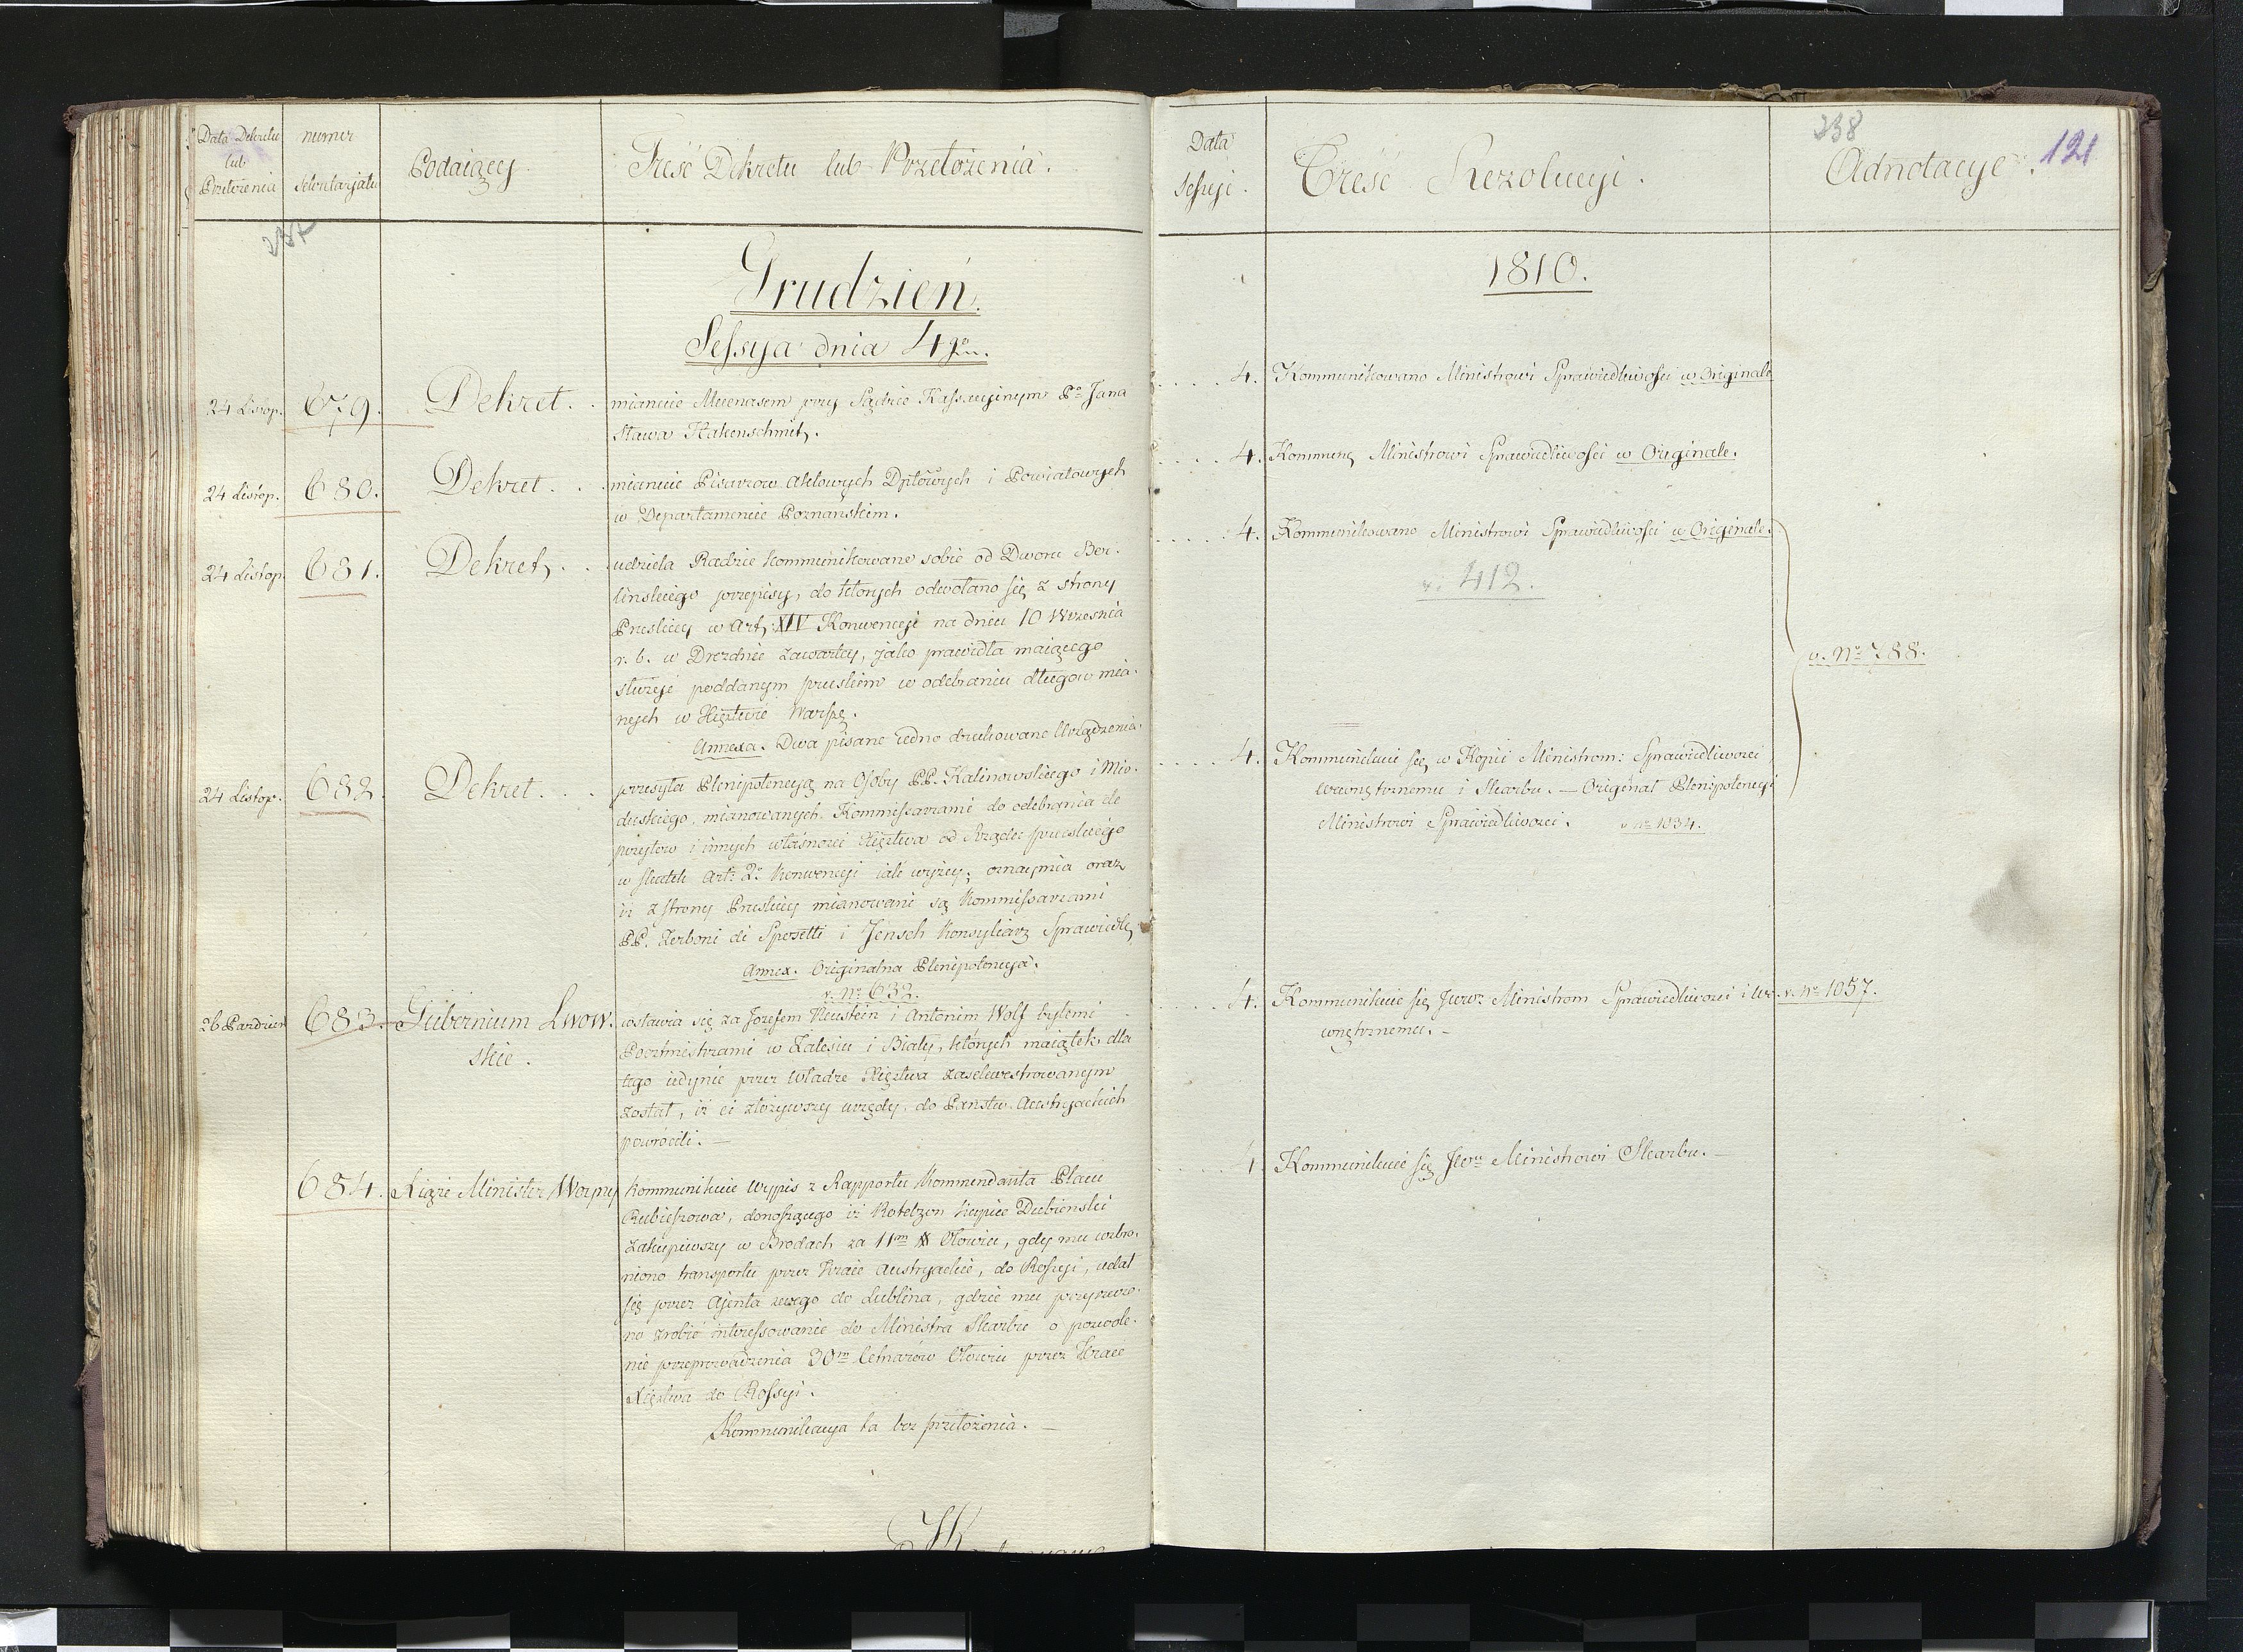 Data Dekretu
lub
Przełożenia
numer
Sekretarjatu
Podaiący
Treść Dekretu lub Przełożenia.
237
Grudzień.
Sessya dnia 4go.
24 Listop. 679. Dekret. . mianuie Mecenasem przy Sądzie Kassacyinym Po Jana
Sława Hakenschmit.
24 Listop. 680. Dekret . . mianuie Pisarzow Aktowych Dptowych i Powiatowych
w Departamencie Poznańskim.
24 Listop. 681. Dekret, . . udziela Radzie kommunikowane sobie od Dworu Ber-
linskiego przepisy, do których odwołano się z strony
Pruskiey w Art. XIV Konwencyi na dniu 10 Września
r. b. w Dreźnie zawartey, jako prawidła maiącego
służyć poddanym pruskim w odebraniu długow mia-
nych w Xięztwie Warsz.
Annexa. Dwa pisane jedno drukowane Urządzenia.
24 Listop. 682. Dekret . . przesyła Plenipotencyą na Osoby PP. Kalinowskiego i Mio-
duskiego, mianowanych Kommissarzami do odebrania de
pozytow i innych własności Xięztwa od Rządu pruskiego
w skutek Art: 2o Konwencyi iak wyżey; oznaymia oraz
iż z strony Pruskiey mianowani są Kommissarzami
PP. Zerboni di Sposetti i Jensch Konsyliarz Sprawiedl.
Annex. Originalna Plenipotencya.
v. No 632.
26 Pazdzier 683. Gubernium Lwow. wstawia się za Jozefem Neustein i Antonim Wolf byłemi
skie. Pocztmistrzami w Zalesiu i Biały, których maiątek dla
tego iedynie przez Władze Xięztwa zasekwestrowanym
został, iż ci złożywszy urzędy, do Państw Austryackich
powrócili. —
684. Xiąże Minister Woyny kommunikuie wypis z Rapportu Kommendanta Placu
Rubieszowa, donoszącego iż Kotelzon kupiec Dubienski
zakupiwszy w Brodach za 11m # Ołowiu, gdy mu wzbro-
niono transportu przez Kraie Austryackie, do Rossyi, udał
się przez Ajenta swego do Lublina, gdzie mu przyrzeczo-
no zrobić interessowanie do Ministra Skarbu o pozwole-
nie przeprowadzenia 30m Cetnarów Ołowiu przez Kraie
Xięztwa do Rossyi.
Kommunikacya ta bez przełożenia. —
Data
Sessyi.
Treść Rezolucyi.
238
Adnotacye.
121
1810.
. . . . 4. Kommunikowano Ministrowi Sprawiedliwości w Originale
. . . . 4. Kommuną Ministrowi Sprawiedliwości w Originale.
. . . . . 4. Kommunikowano Ministrowi Sprawiedliwości w Originale.
v. 412.
v. No 788.
. . . . 4. Kommunikuie się w Kopii Ministrom: Sprawiedliwości
wewnętrznemu i Skarbu. — Originał Plenipotencyi
Ministrowi Sprawiedliwości. v No 1034.
. . . . 4. Kommunikuie się Jww Ministrom Sprawiedliwości i We- v. No 1057.
wnętrznemu. —
. . . . 4. Kommunikuie się JWu Ministrowi Skarbu. —